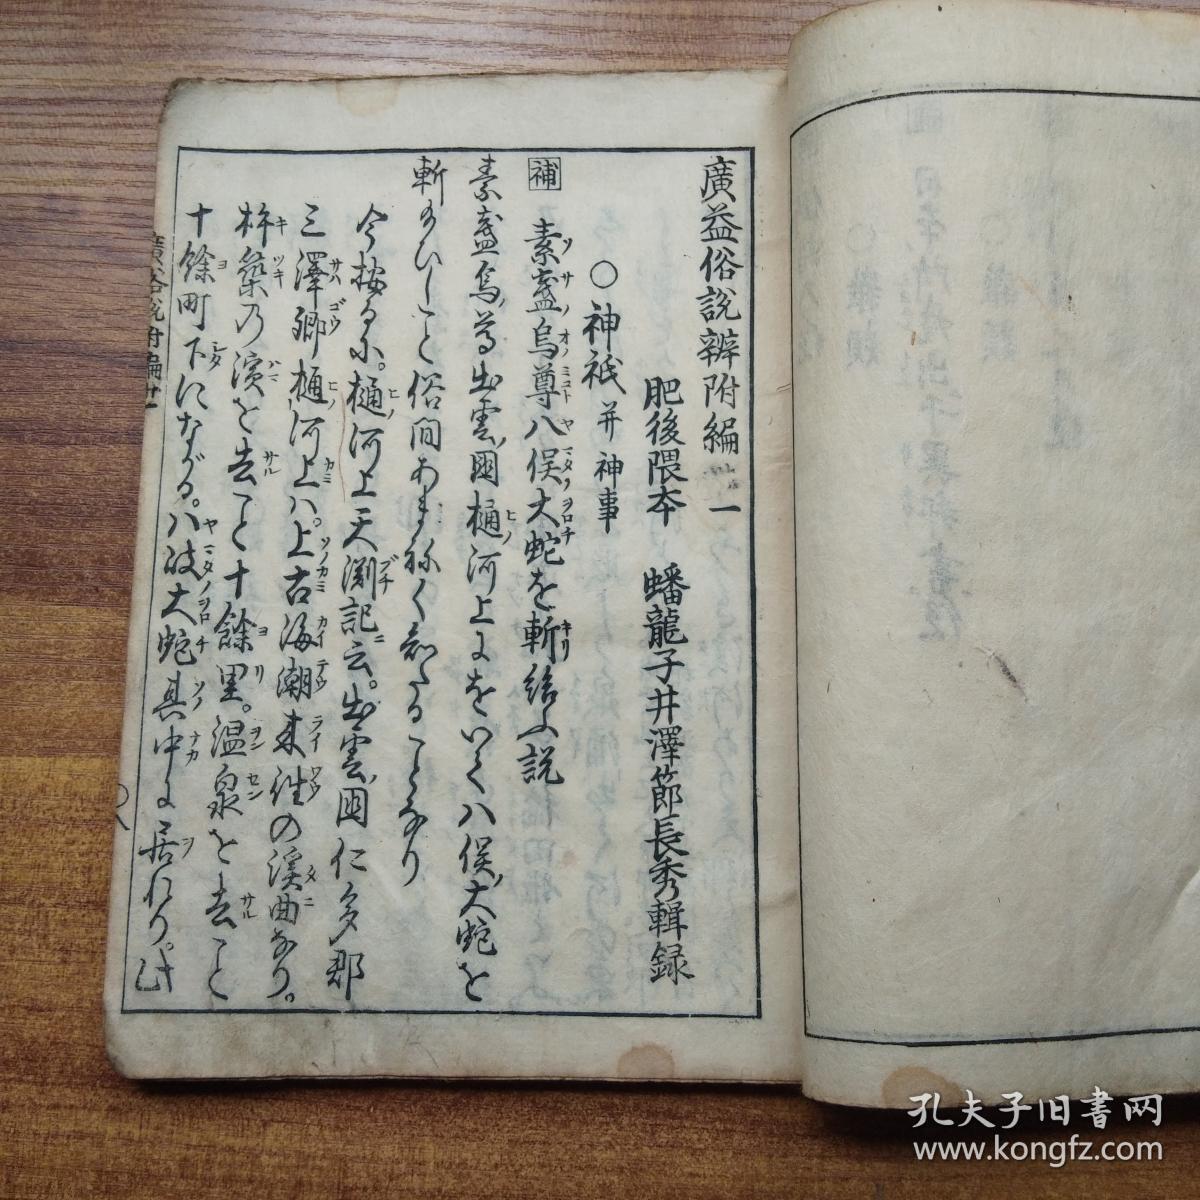 廣益俗説辨附編
肥後隈本 蟠龍子井澤節長秀輯録
○神祇 并神事
補 素盞烏尊八俣大蛇を斬給ふ説
素盞烏尊出雲國樋河上にをいて八俣大蛇を
斬給ひしと俗間あまねくしることなり
今按るに。樋河上天淵記云。出雲國仁多郡
三澤郷樋河上ハ。上古海潮来往の渓曲なり。
杵築乃濱を去こと十餘里。温泉を去こと
十餘町下にながる。八岐大蛇其中に居れり。此
孔夫子旧书网
www.kongfz.com